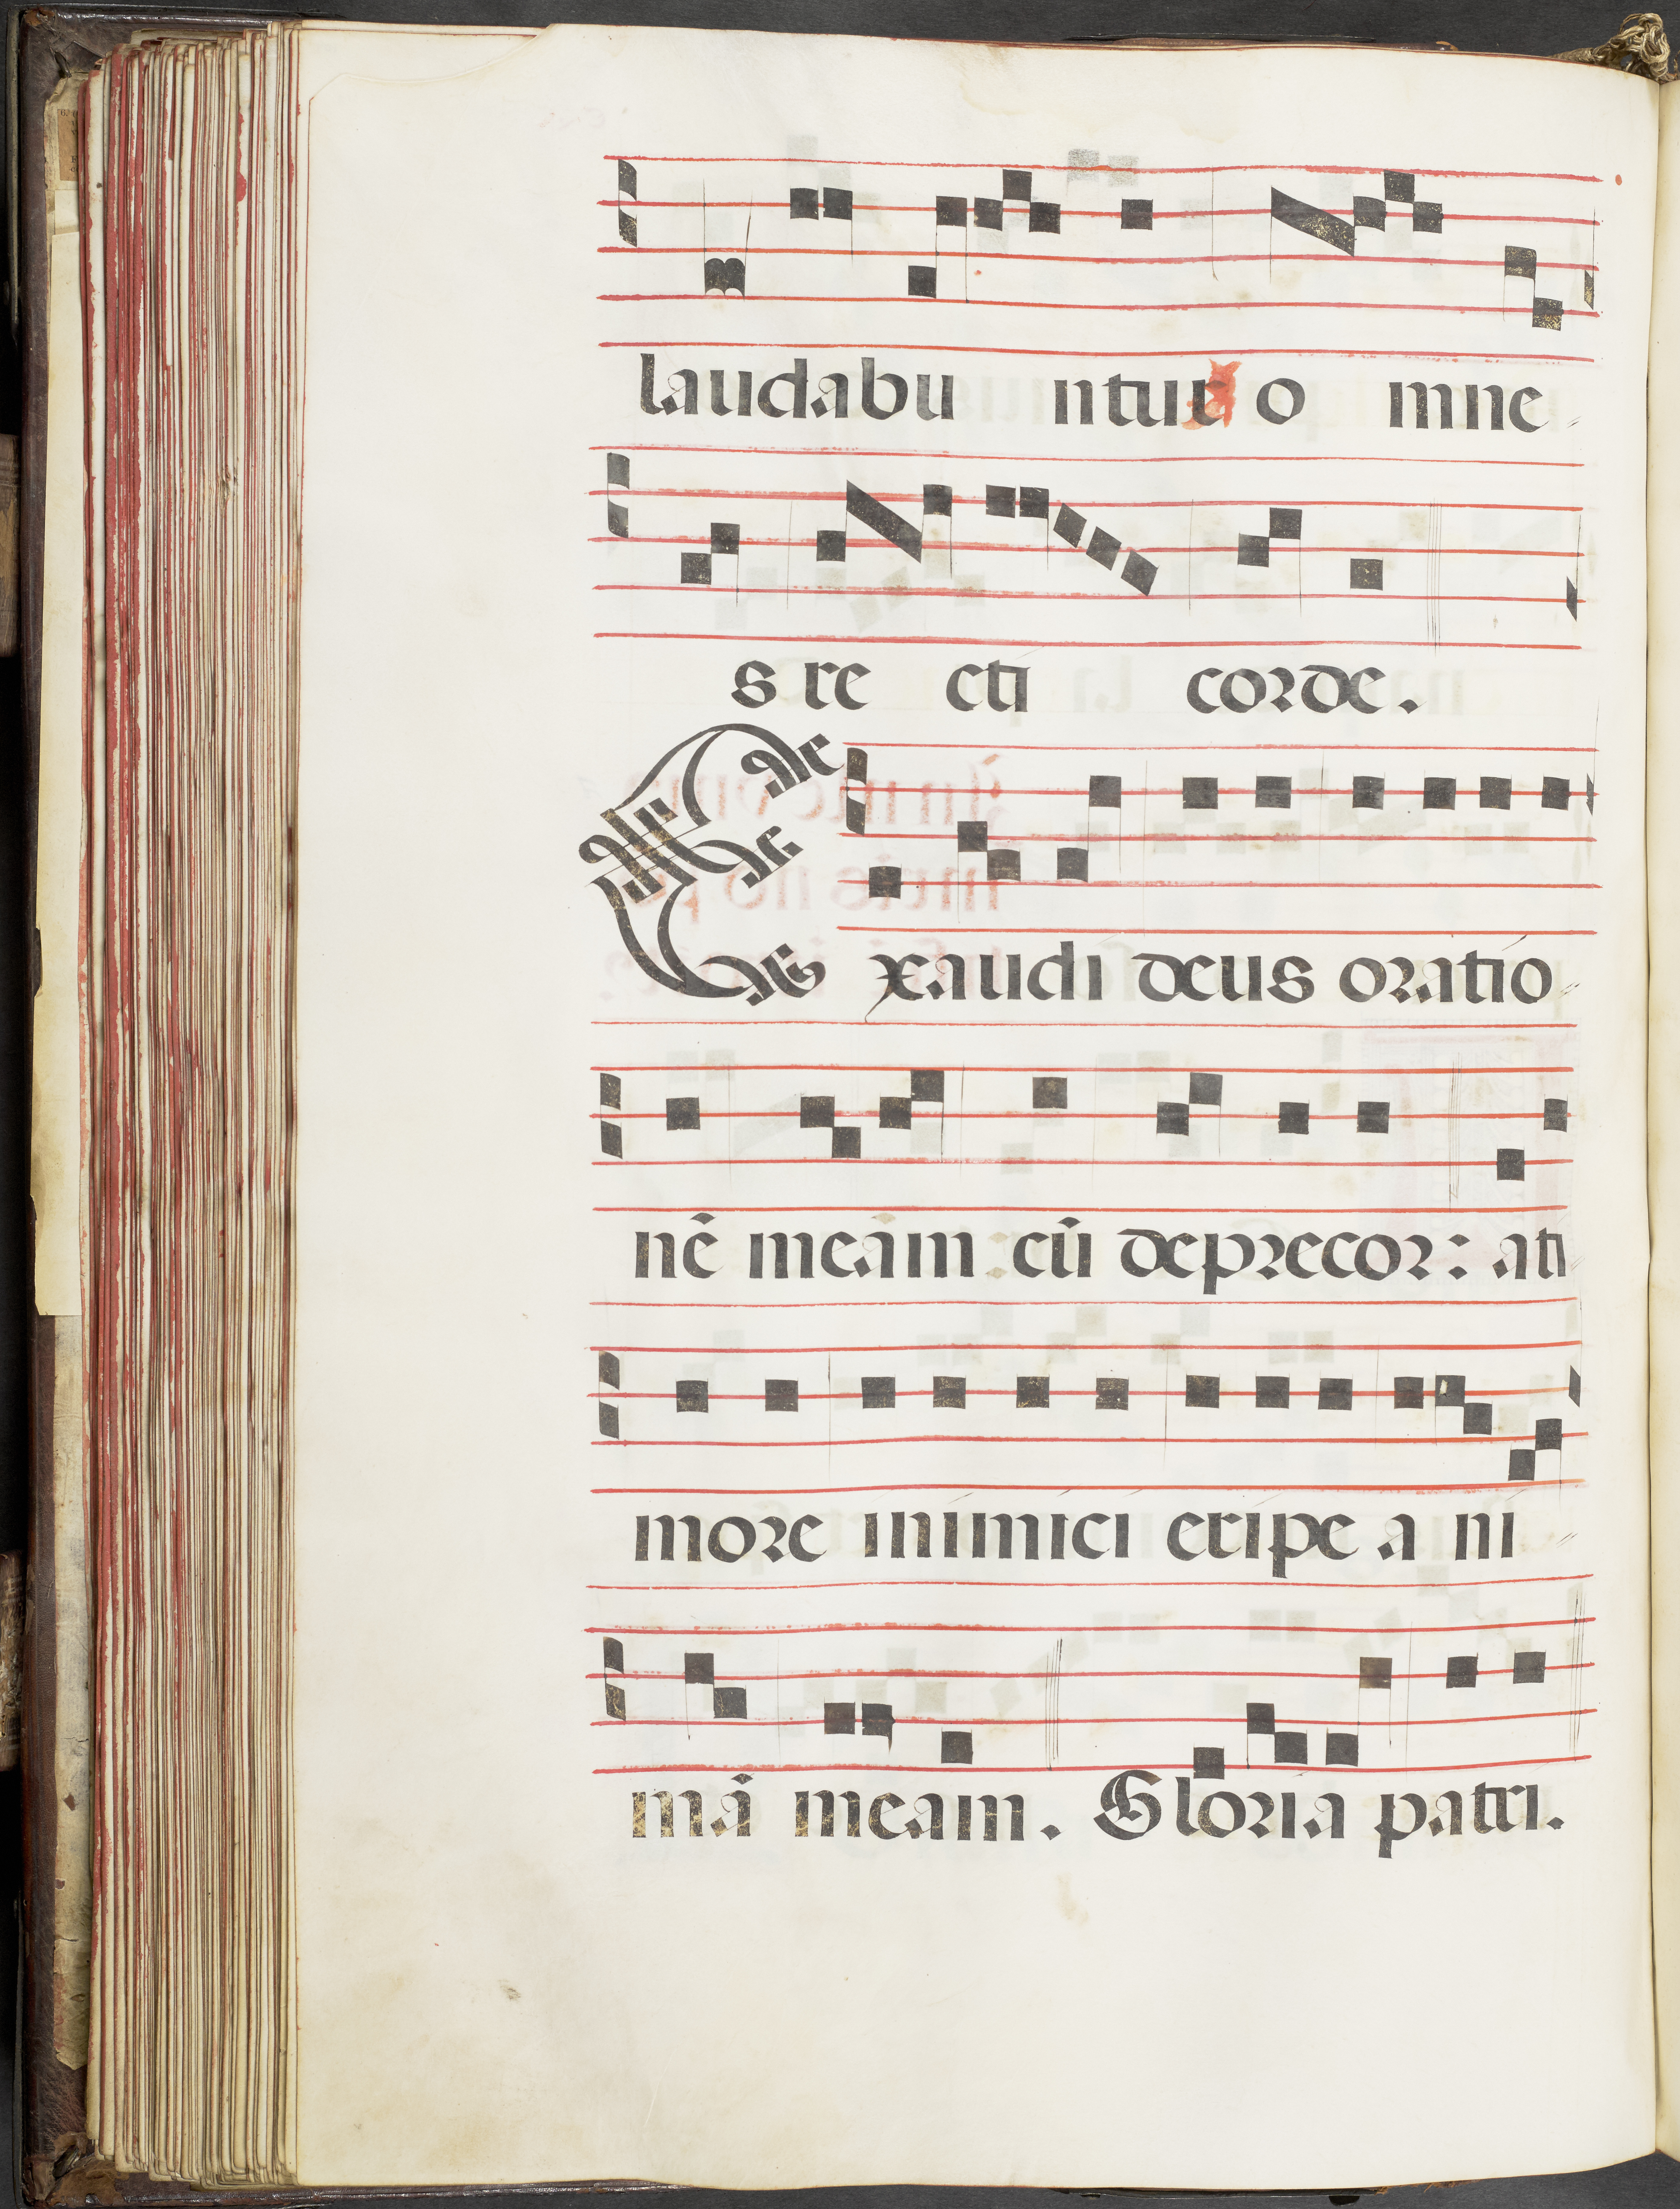 laudabu ntur o mne
s re cti corde.
Exaudi deus oratio
nē meam cū deprecor: a ti
more inimici eripe a ni
mā meam. Gloria patri.